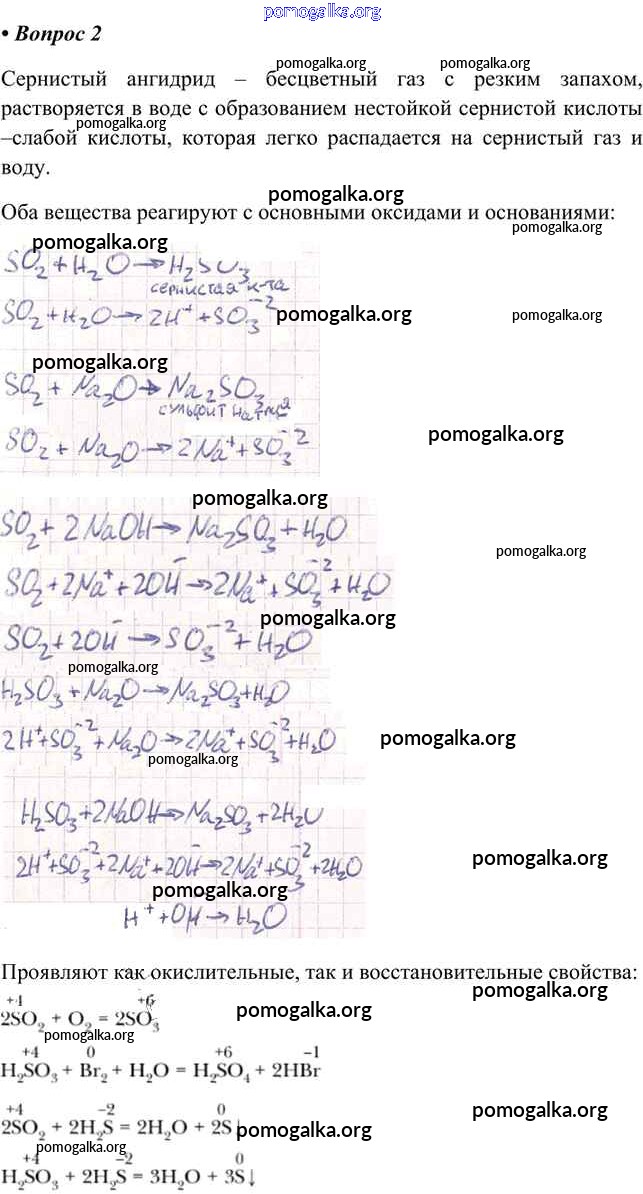 pomogalka.org
• Вопрос 2
pomogalka.org pomogalka.org
Сернистый ангидрид – бесцветный газ с резким запахом,
растворяется в воде с образованием нестойкой сернистой кислоты
pomogalka.org
–слабой кислоты, которая легко распадается на сернистый газ и
воду.
pomogalka.org
Оба вещества реагируют с основными оксидами и основаниями:
pomogalka.org
pomogalka.org
SO₂ + H₂O → H₂SO₃
сернистая к-та
SO₂ + H₂O → 2H⁺ + SO₃⁻²
pomogalka.org pomogalka.org
pomogalka.org
SO₂ + Na₂O → Na₂SO₃
сульфит натрия
SO₂ + Na₂O → 2Na⁺ + SO₃⁻²
pomogalka.org
pomogalka.org
SO₂ + 2NaOH → Na₂SO₃ + H₂O
pomogalka.org
SO₂ + 2Na⁺ + 2OH⁻ → 2Na⁺ + SO₃⁻² + H₂O
pomogalka.org
SO₂ + 2OH⁻ → SO₃⁻² + H₂O
pomogalka.org
H₂SO₃ + Na₂O → Na₂SO₃ + H₂O
2H⁺ + SO₃⁻² + Na₂O → 2Na⁺ + SO₃⁻² + H₂O
pomogalka.org
pomogalka.org
H₂SO₃ + 2NaOH → Na₂SO₃ + 2H₂O
2H⁺ + SO₃⁻² + 2Na⁺ + 2OH⁻ → 2Na⁺ + SO₃⁻² + 2H₂O
pomogalka.org
pomogalka.org
H⁺ + OH⁻ → H₂O
Проявляют как окислительные, так и восстановительные свойства:
pomogalka.org
+4 +6
2SO₂ + O₂ = 2SO₃
pomogalka.org
pomogalka.org
+4 0 +6 –1
H₂SO₃ + Br₂ + H₂O = H₂SO₄ + 2HBr
+4 –2 0
2SO₂ + 2H₂S = 2H₂O + 2S↓
pomogalka.org
pomogalka.org
pomogalka.org
+4 –2 0
H₂SO₃ + 2H₂S = 3H₂O + 3S↓